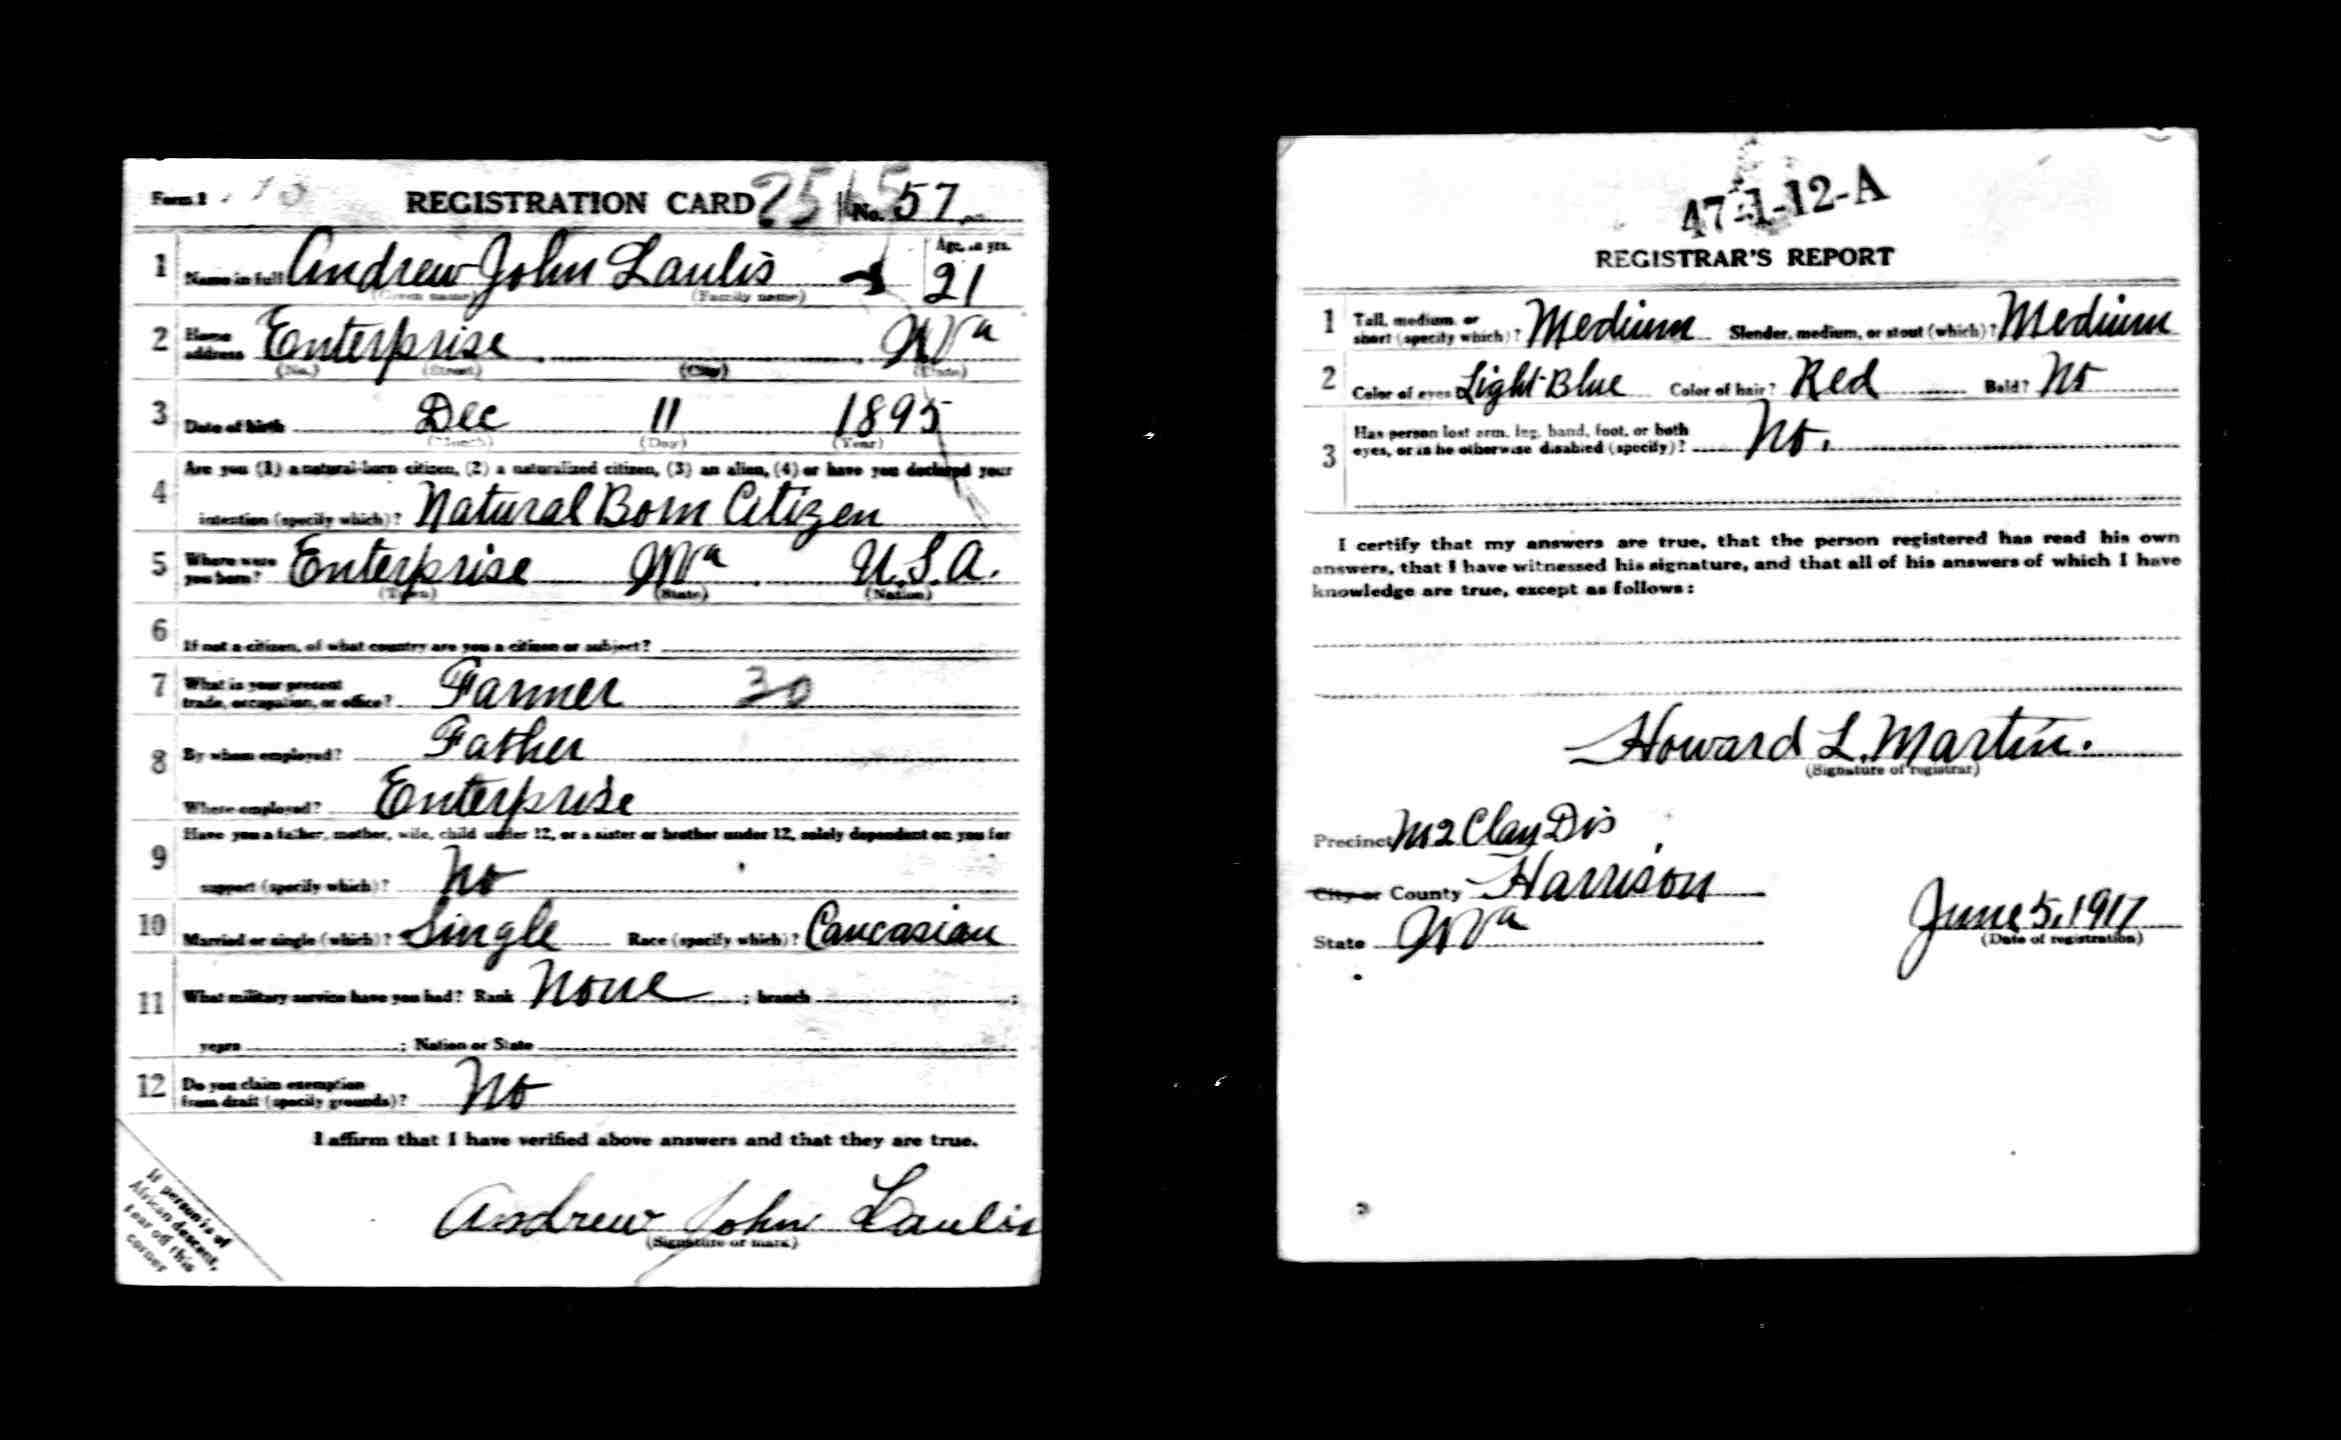 Form 1 REGISTRATION CARD No. 57
1 Name in full Andrew John Laulis Age, in yrs. 21
(Given name) (Family name)
2 Home address Enterprise Wva
(No.) (Street) (City) (State)
3 Date of birth Dec 11 1895
(Month) (Day) (Year)
4 Are you (1) a natural-born citizen, (2) a naturalized citizen, (3) an alien, (4) or have you declared your
intention (specify which)? Natural Born Citizen
5 Where were you born? Enterprise Wva U.S.A.
(Town) (State) (Nation)
6 If not a citizen, of what country are you a citizen or subject?
7 What is your present
trade, occupation, or office? Farmer 30
8 By whom employed? Father
Where employed? Enterprise
9 Have you a father, mother, wife, child under 12, or a sister or brother under 12, solely dependent on you for
support (specify which)? No
10 Married or single (which)? Single Race (specify which)? Caucasian
11 What military service have you had? Rank None ; branch ;
years ; Nation or State
12 Do you claim exemption
from draft (specify grounds)? No
I affirm that I have verified above answers and that they are true.
Andrew John Laulis
(Signature or mark)
If person is of
African descent,
tear off this
corner
47-1-12-A
REGISTRAR'S REPORT
1 Tall, medium, or
short (specify which)? Medium Slender, medium, or stout (which)? Medium
2 Color of eyes Light Blue Color of hair? Red Bald? No
3 Has person lost arm, leg, hand, foot, or both
eyes, or is he otherwise disabled (specify)? No.
I certify that my answers are true, that the person registered has read his own
answers, that I have witnessed his signature, and that all of his answers of which I have
knowledge are true, except as follows:
Howard L. Martin.
(Signature of registrar)
Precinct No 2 Clay Dis
City or County Harrison
State Wva June 5, 1917
(Date of registration)